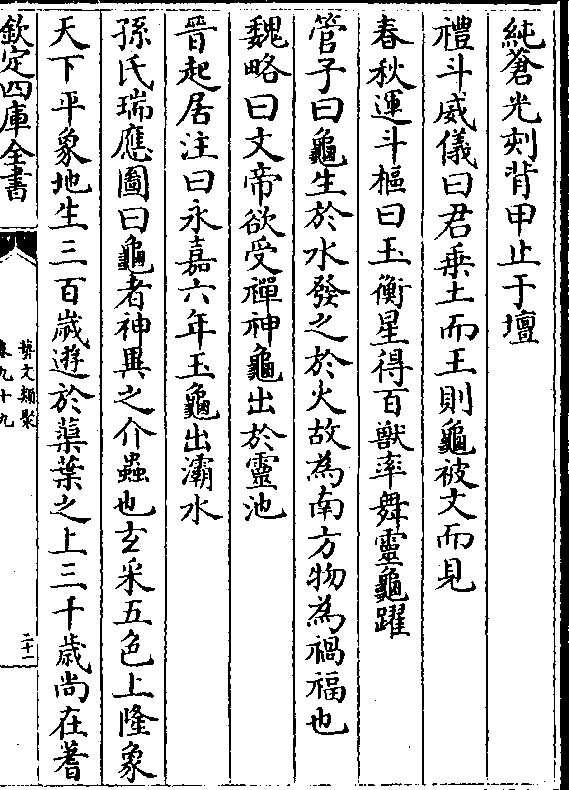 純蒼光刻背甲止于壇
禮斗威儀曰君乗土而王則龜被文而見
春秋運斗樞曰玉衡星得百獸率舞靈龜躍
管子曰龜生於水發之於火故為南方物為禍福也
魏略曰文帝欲受禪神龜出於靈池
晉起居注曰永嘉六年玉龜出灞水
孫氏瑞應圖曰龜者神異之介蟲也玄采五色上隆象
天下平象地生三百歲遊於蕖葉之上三千歲尚在蓍
欽定四庫全書
藝文類聚
卷九十九
二十一